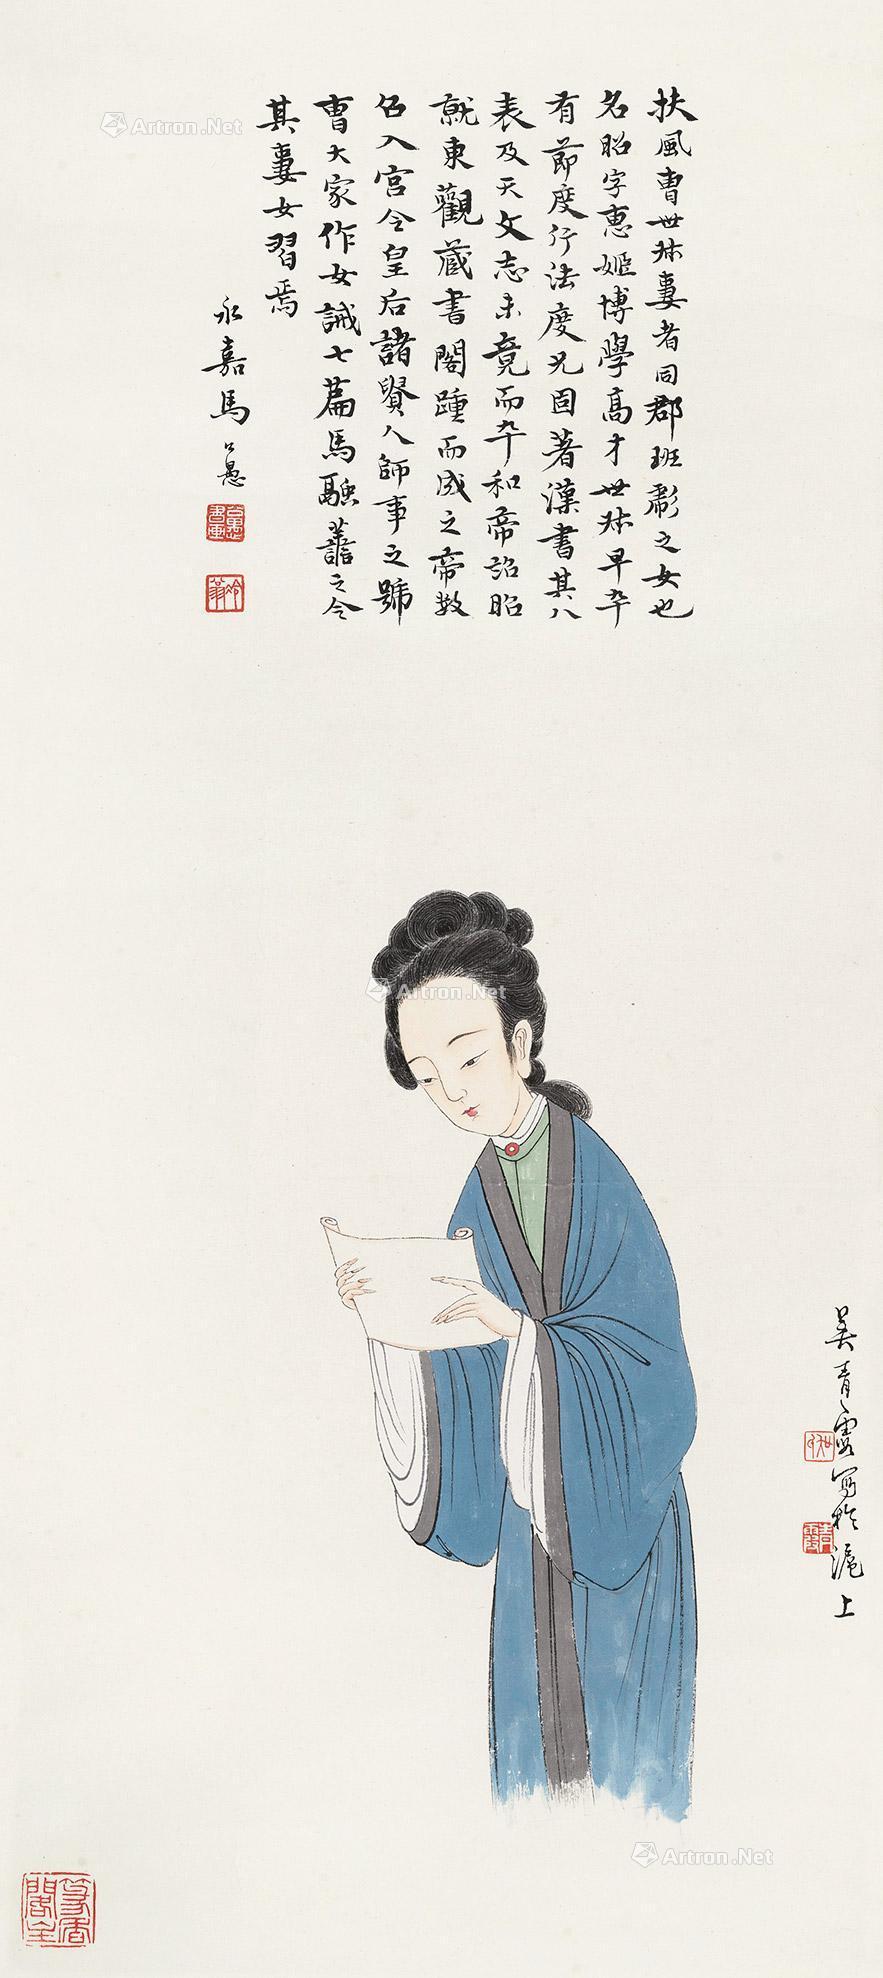 扶風曹世叔妻者同郡班彪之女也
名昭字惠姬博學高才世叔早卒
有節度行法度兄固著漢書其八
表及天文志未竟而卒和帝詔昭
就東觀藏書閣踵而成之帝數
召入宮令皇后諸貴人師事之號
曹大家作女誡七篇馬融善之令
其妻女習焉
永嘉馬公愚
吳青霞寫於滬上
青霞
篆香閣主
Artron.Net
Artron.Net
Artron.Net